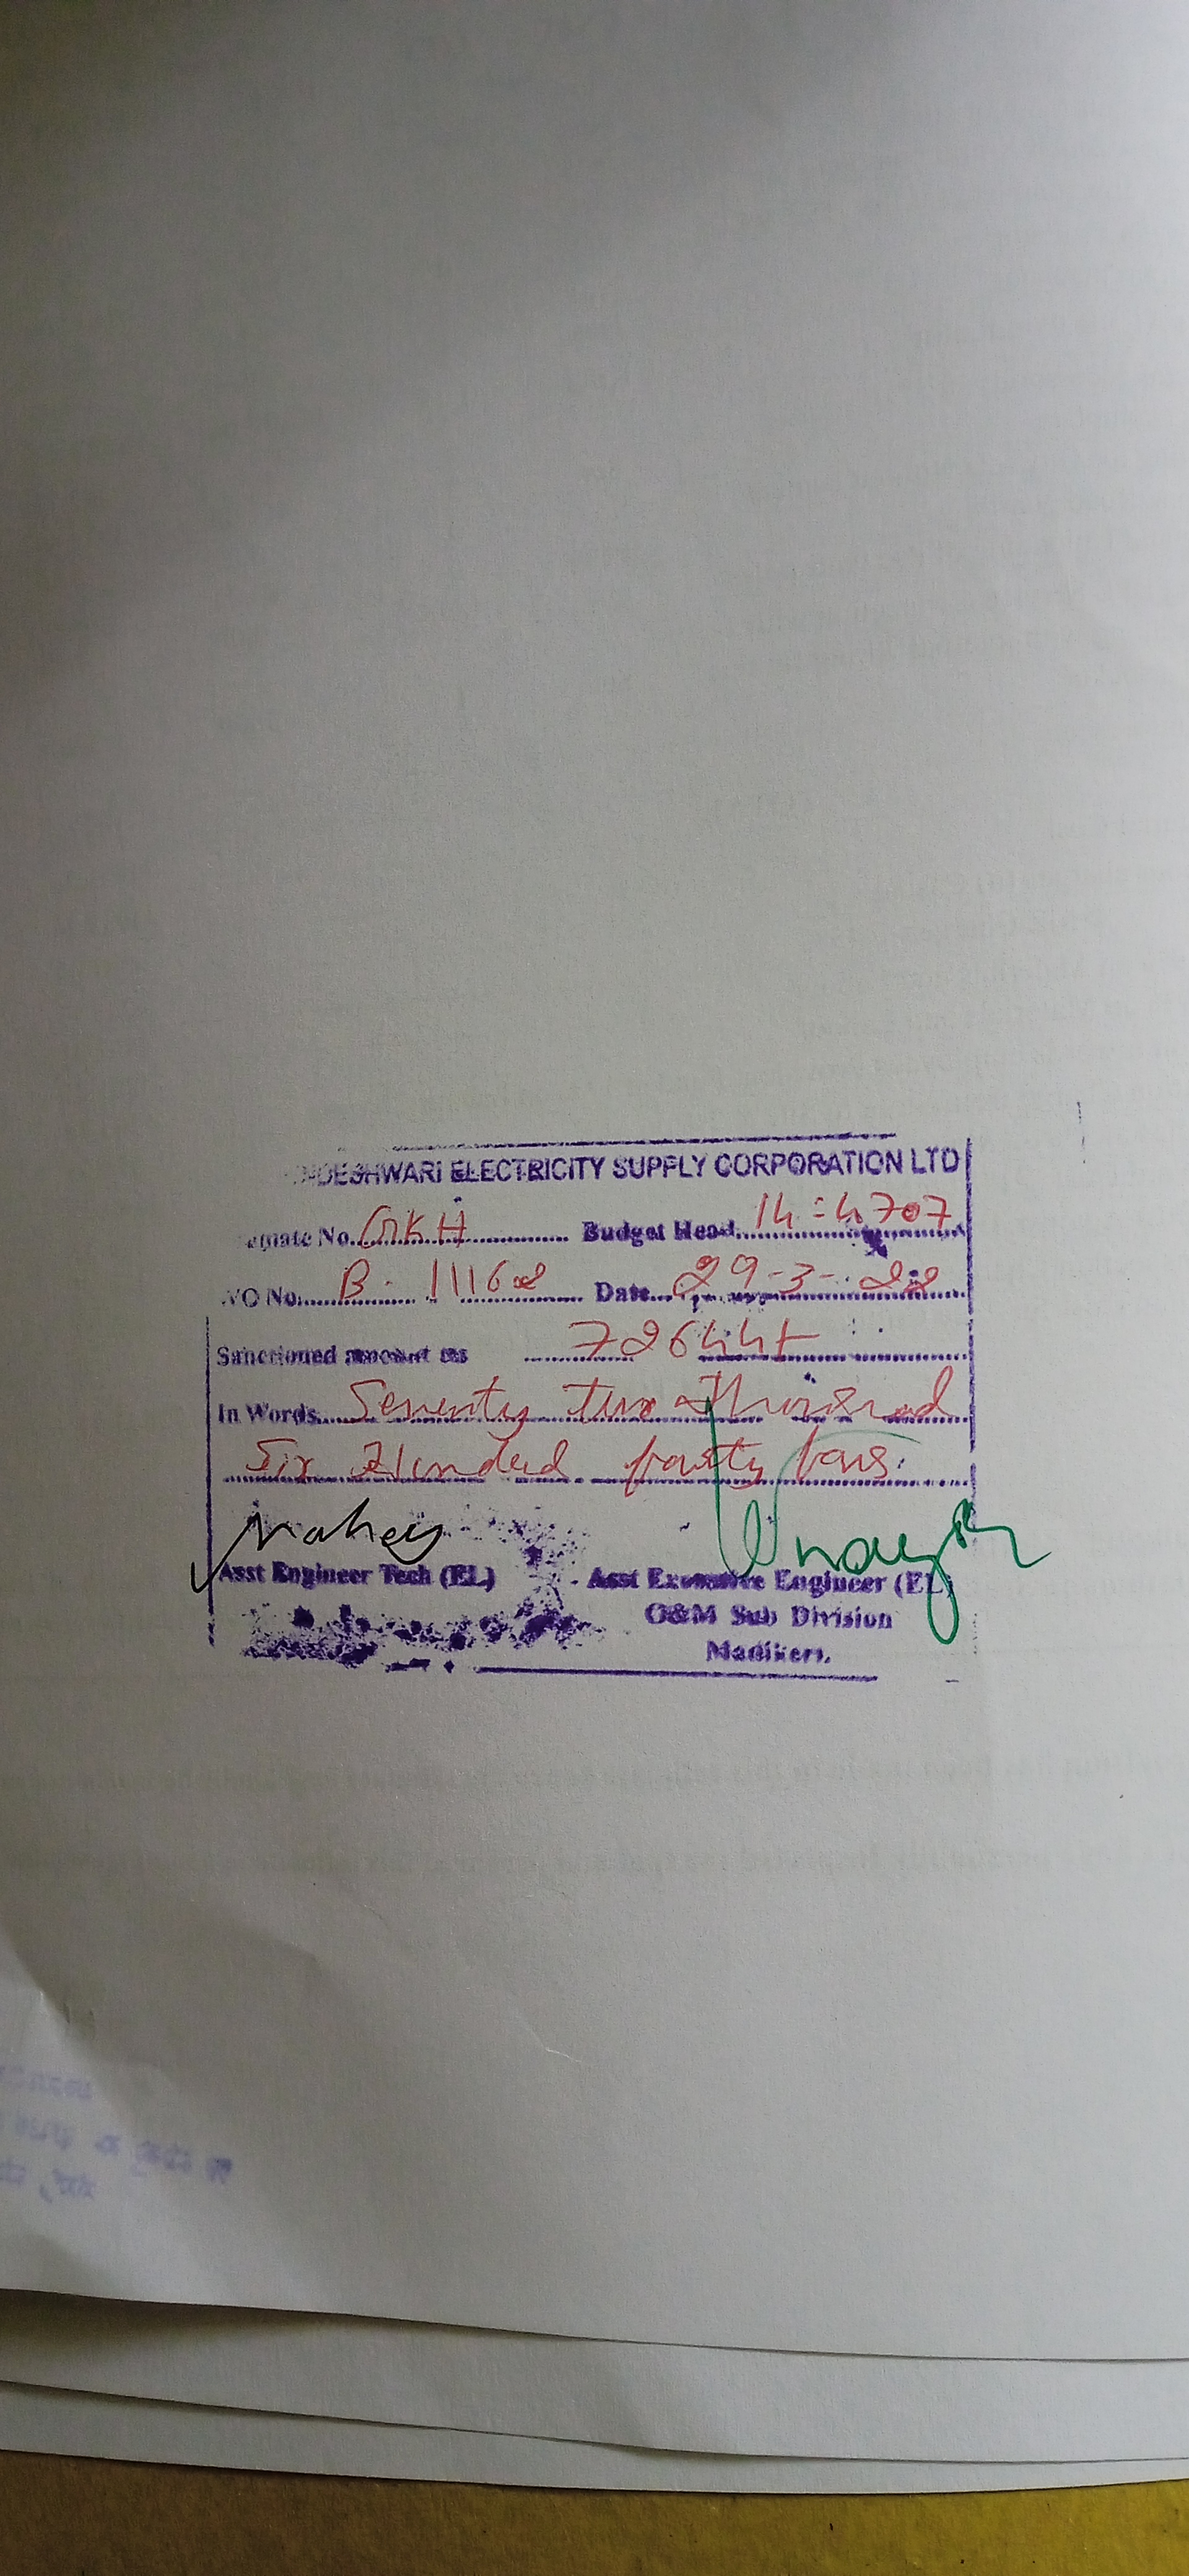 DESHWARI ELECTRICITY SUPPLY CORPORATION LTD
mate No. GKH Budget Head 14-4707
WO No. B- 11162 Date 29-3-22
Sanctioned amount Rs 72644/-
In Words Seventy two Thousand
Six Hundred forty four
Asst Engineer Tech (EL) Asst Executive Engineer (EL)
O&M Sub Division
Madikeri.